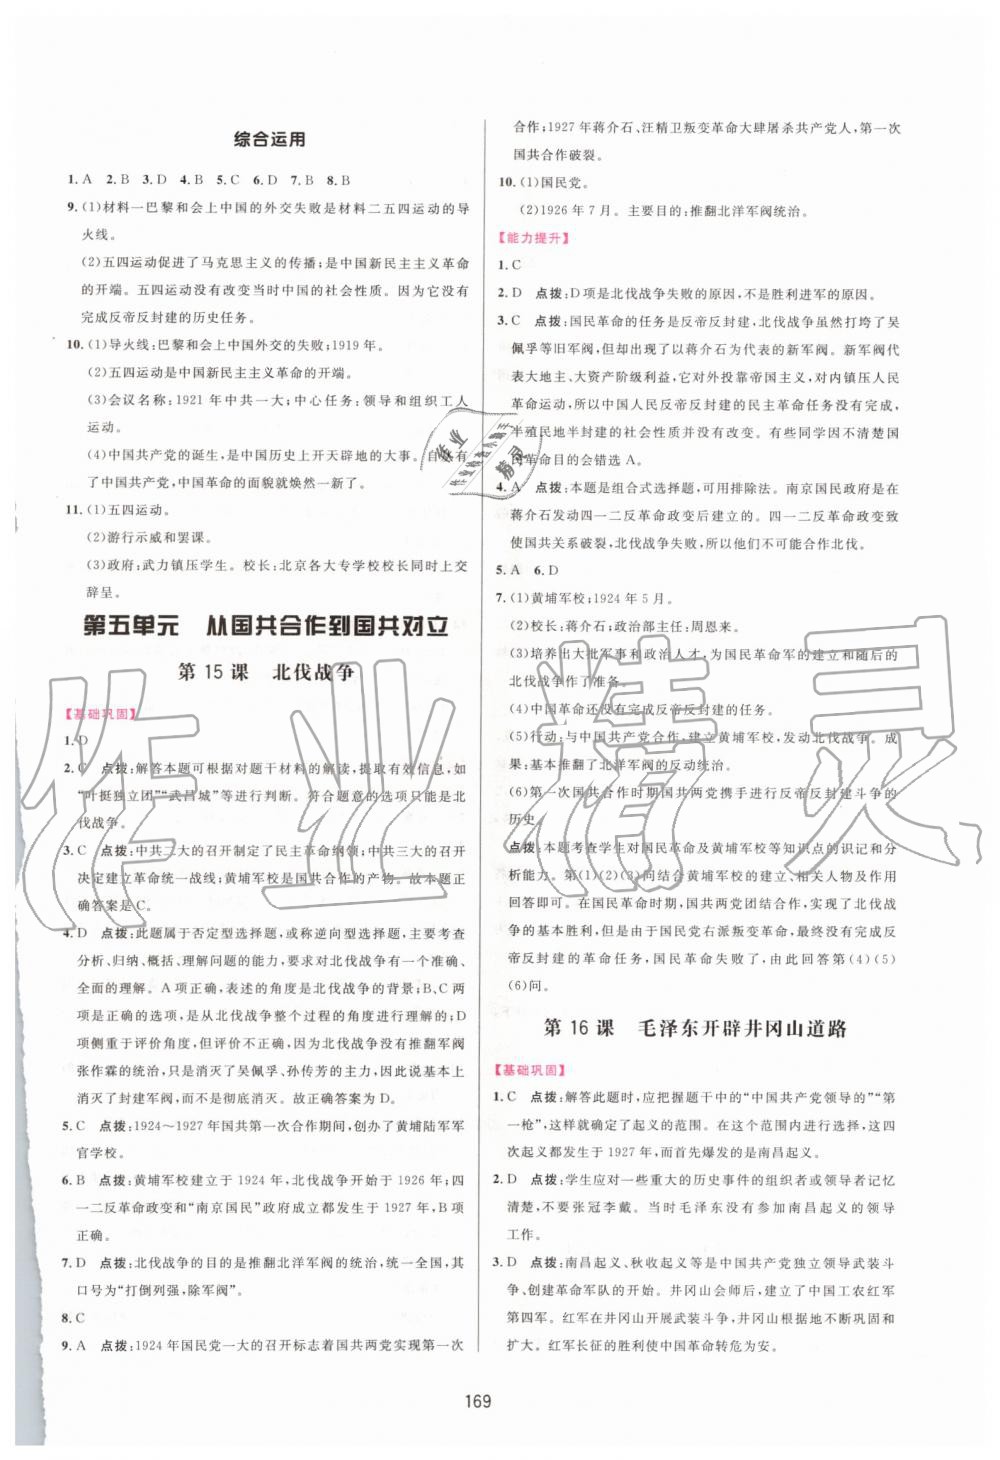 综合运用
1. A 2. B 3. D 4. B 5. C 6. D 7. B 8. B
9. (1)材料一巴黎和会上中国的外交失败是材料二五四运动的导
火线。
(2)五四运动促进了马克思主义的传播;是中国新民主主义革命
的开端。五四运动没有改变当时中国的社会性质。因为它没有
完成反帝反封建的历史任务。
10. (1)导火线:巴黎和会上中国外交的失败;1919年。
(2)五四运动是中国新民主主义革命的开端。
(3)会议名称:1921年中共一大;中心任务:领导和组织工人
运动。
(4)中国共产党的诞生,是中国历史上开天辟地的大事。自从有
了中国共产党,中国革命的面貌就焕然一新了。
11. (1)五四运动。
(2)游行示威和罢课。
(3)政府:武力镇压学生。校长:北京各大专学校校长同时上交
辞呈。
第五单元 从国共合作到国共对立
第15课 北伐战争
【基础巩固】
1. D
2. C 点拨:解答本题可根据对题干材料的解读,提取有效信息,如
“叶挺独立团”“武昌城”等进行判断。符合题意的选项只能是北
伐战争。
3. C 点拨:中共二大的召开制定了民主革命纲领;中共三大的召开
决定建立革命统一战线;黄埔军校是国共合作的产物。故本题正
确答案是C。
4. D 点拨:此题属于否定型选择题,或称逆向型选择题,主要考查
分析、归纳、概括、理解问题的能力,要求对北伐战争有一个准确、
全面的理解。A项正确,表述的角度是北伐战争的背景;B、C两项
是正确的选项,是从北伐战争整个过程的角度进行理解的;D项
侧重于评价角度,但评价不准确,北伐战争没有推翻军阀
张作霖的统治,只是消灭了吴佩孚、孙传芳的主力,从根本上
消灭了封建军阀,不是彻底消灭。故正确答案为D。
5. C 点拨:1924～1927年国共第一次合作期间,创办了黄埔陆军军
官学校。
6. B 点拨:黄埔军校建立于1924年,北伐战争开始于1926年;四
一二反革命政变和“南京国民”政府成立都发生于1927年,B项
正确。
7. D 点拨:北伐战争的目的是推翻北洋军阀的统治,统一全国,其
口号为“打倒列强,除军阀”。
8. C
9. A 点拨:1924年国民党一大的召开标志着国共两党实现第一次
合作;1927年蒋介石、汪精卫叛变革命大肆屠杀共产党人,第一次
国共合作破裂。
10. (1)国民党。
(2)1926年7月。主要目的:推翻北洋军阀统治。
【能力提升】
1. C
2. D 点拨:D项是北伐战争失败的原因,不是胜利进军的原因。
3. C 点拨:国民革命的任务是反帝反封建,北伐战争虽然打垮了吴
佩孚等旧军阀,但却出现了以蒋介石为代表的新军阀。新军阀代
表大地主、大资产阶级利益,它对外投靠帝国主义,对内镇压人民
革命运动,所以中国人民反帝反封建的民主革命任务没有完成,
半殖民地半封建的社会性质并没有改变。有些同学不清楚国
民革命目的会错选A。
4. A 点拨:本题是组合式选择题,可用排除法。南京国民政府是在
蒋介石发动四一二反革命政变后建立的。四一二反革命政变致
使国共关系破裂,北伐战争失败,所以他们不可能合作北伐。
5. A 6. D
7. (1)黄埔军校;1924年5月。
(2)校长:蒋介石;政治部主任:周恩来。
(3)培养出大批军事和政治人才,为国民革命军的建立和随后的
北伐战争作了准备。
(4)中国革命还没有完成反帝反封建的任务。
(5)行动:与中国共产党合作,建立黄埔军校,发动北伐战争。成
果:基本推翻了北洋军阀的反动统治。
(6)第一次国共合作时期国共两党携手进行反帝反封建斗争的
历史。
点拨:本题考查学生对国民革命及黄埔军校等知识点的识记和分
析能力。第(1)(2)(3)问结合黄埔军校的建立、相关人物及作用
回答即可。在国民革命时期,国共两党团结合作,实现了北伐战
争的基本胜利,但是由于国民党右派叛变革命,最终没有完成反
帝反封建的革命任务,国民革命失败了,由此回答第(4)(5)
(6)问。
第16课 毛泽东开辟井冈山道路
【基础巩固】
1. C 点拨:解答此题时,应把握题干中的“中国共产党领导的”“第
一枪”,这就确定了起义的范围。然后再确定发生的时间,这四
次起义都发生于1927年,而首先爆发的是南昌起义。
2. D 点拨:学生应对一些重大的历史事件的组织者或领导者记忆
清楚,不要张冠李戴。当时毛泽东没有参加南昌起义的领导
工作。
3. D 点拨:南昌起义、秋收起义等是中国共产党实行武装斗
争、创建革命军队的开始。井冈山会师后,建立了中国工农红军
第四军。红军在井冈山开展武装斗争,井冈山根据地不断巩固和
扩大。红军长征的胜利使中国革命转危为安。
169
作业精灵